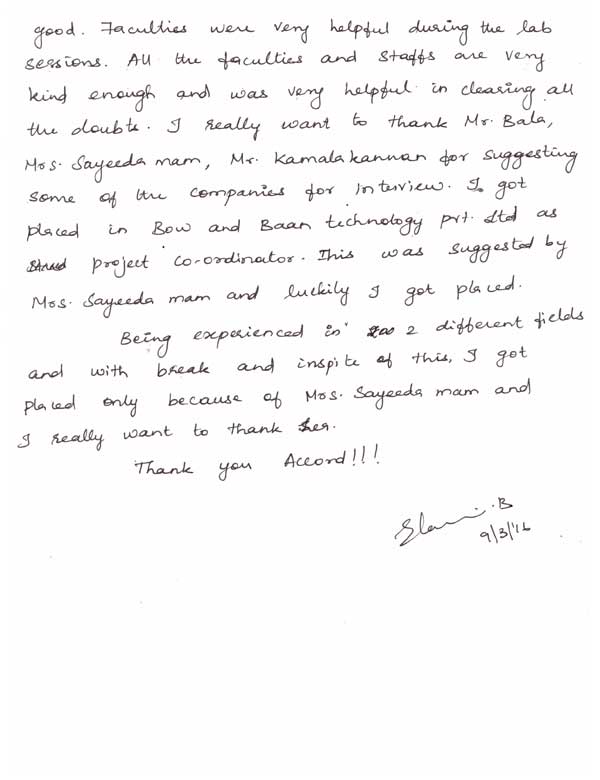 good. Faculties were very helpful during the lab
sessions. All the faculties and staffs are very
kind enough and was very helpful in clearing all
the doubts. I really want to thank Mr. Bala,
Mrs. Sayeeda mam, Mr. Kamalakannan for suggesting
some of the companies for Interview. I got
placed in Bow and Baan technology pvt. Ltd as
project co-ordinator. This was suggested by
Mrs. Sayeeda mam and luckily I got placed.
Being experienced in 2 different fields
and with break and inspite of this, I got
placed only because of Mrs. Sayeeda mam and
I really want to thank her.
Thank you Accord!!!
.B
9/3/'16